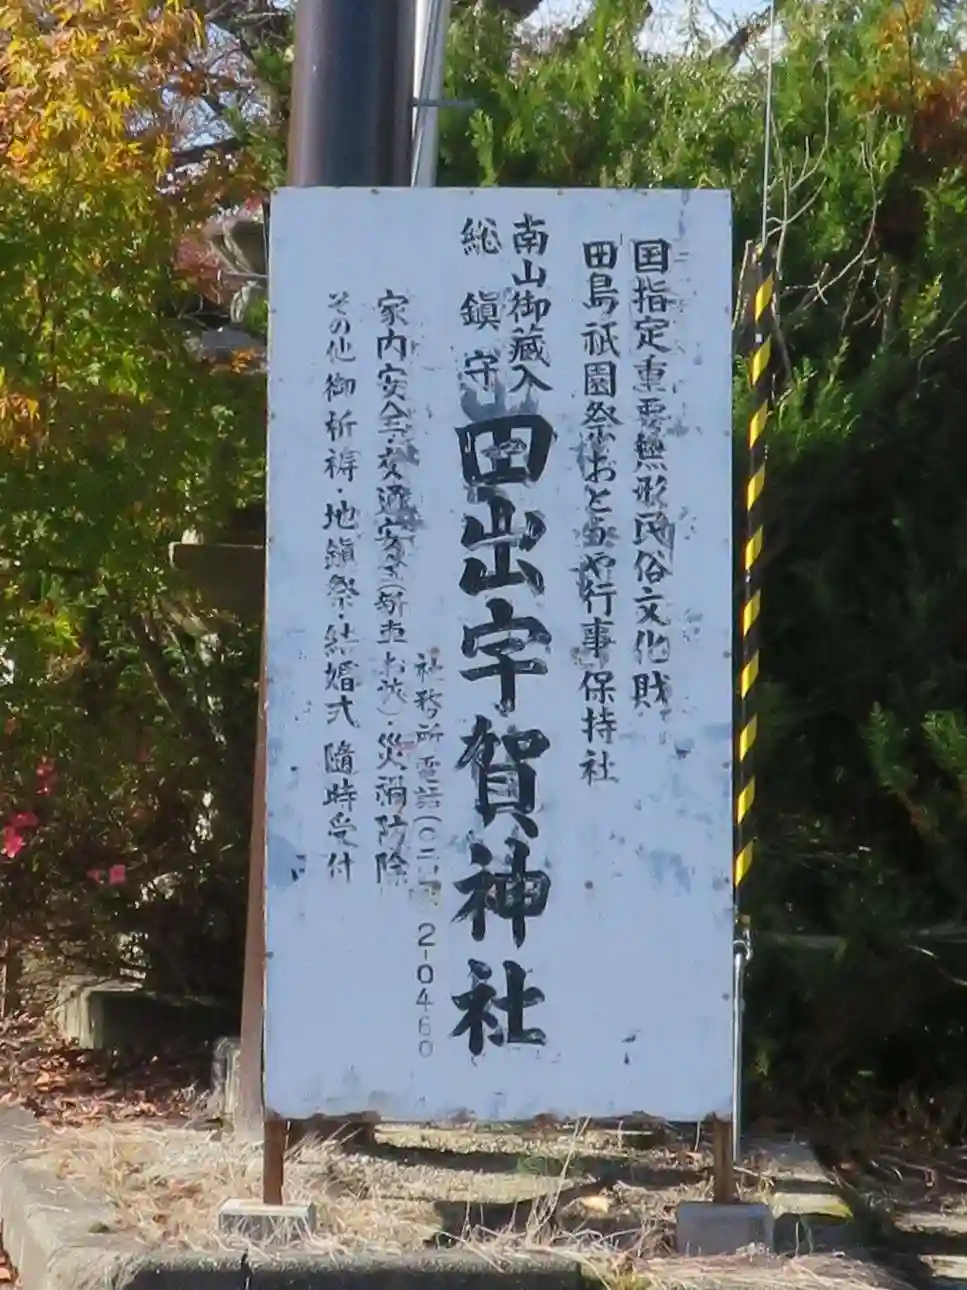 国指定重要無形民俗文化財
田島祇園祭おとうや行事保持社
南山御蔵入
総鎮守
田出宇賀神社
社務所電話(〇二四 2-0460
家内安全・交通安全(新車お祓)・災消防除
その他御祈祷・地鎮祭・結婚式 随時受付